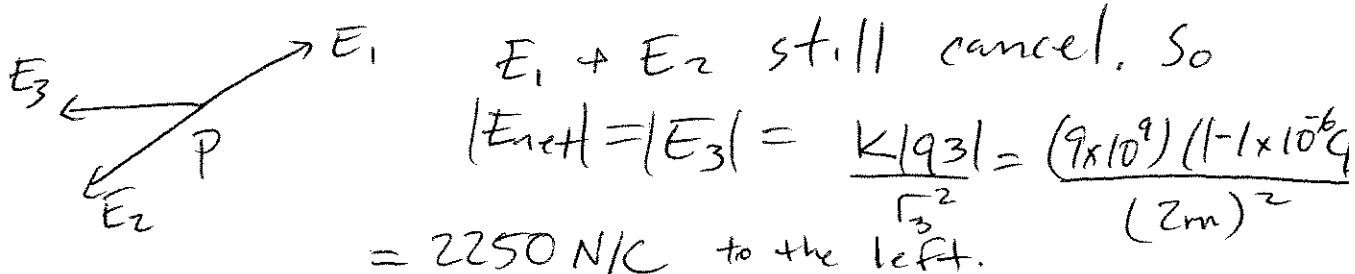 E₁ E₁ + E₂ still cancel. So
E₃ |Enet| = |E₃| = K|q3| / r₃² = (9x10⁹)(|-1x10⁻⁶C / (2m)²
P
E₂
= 2250 N/C to the left.